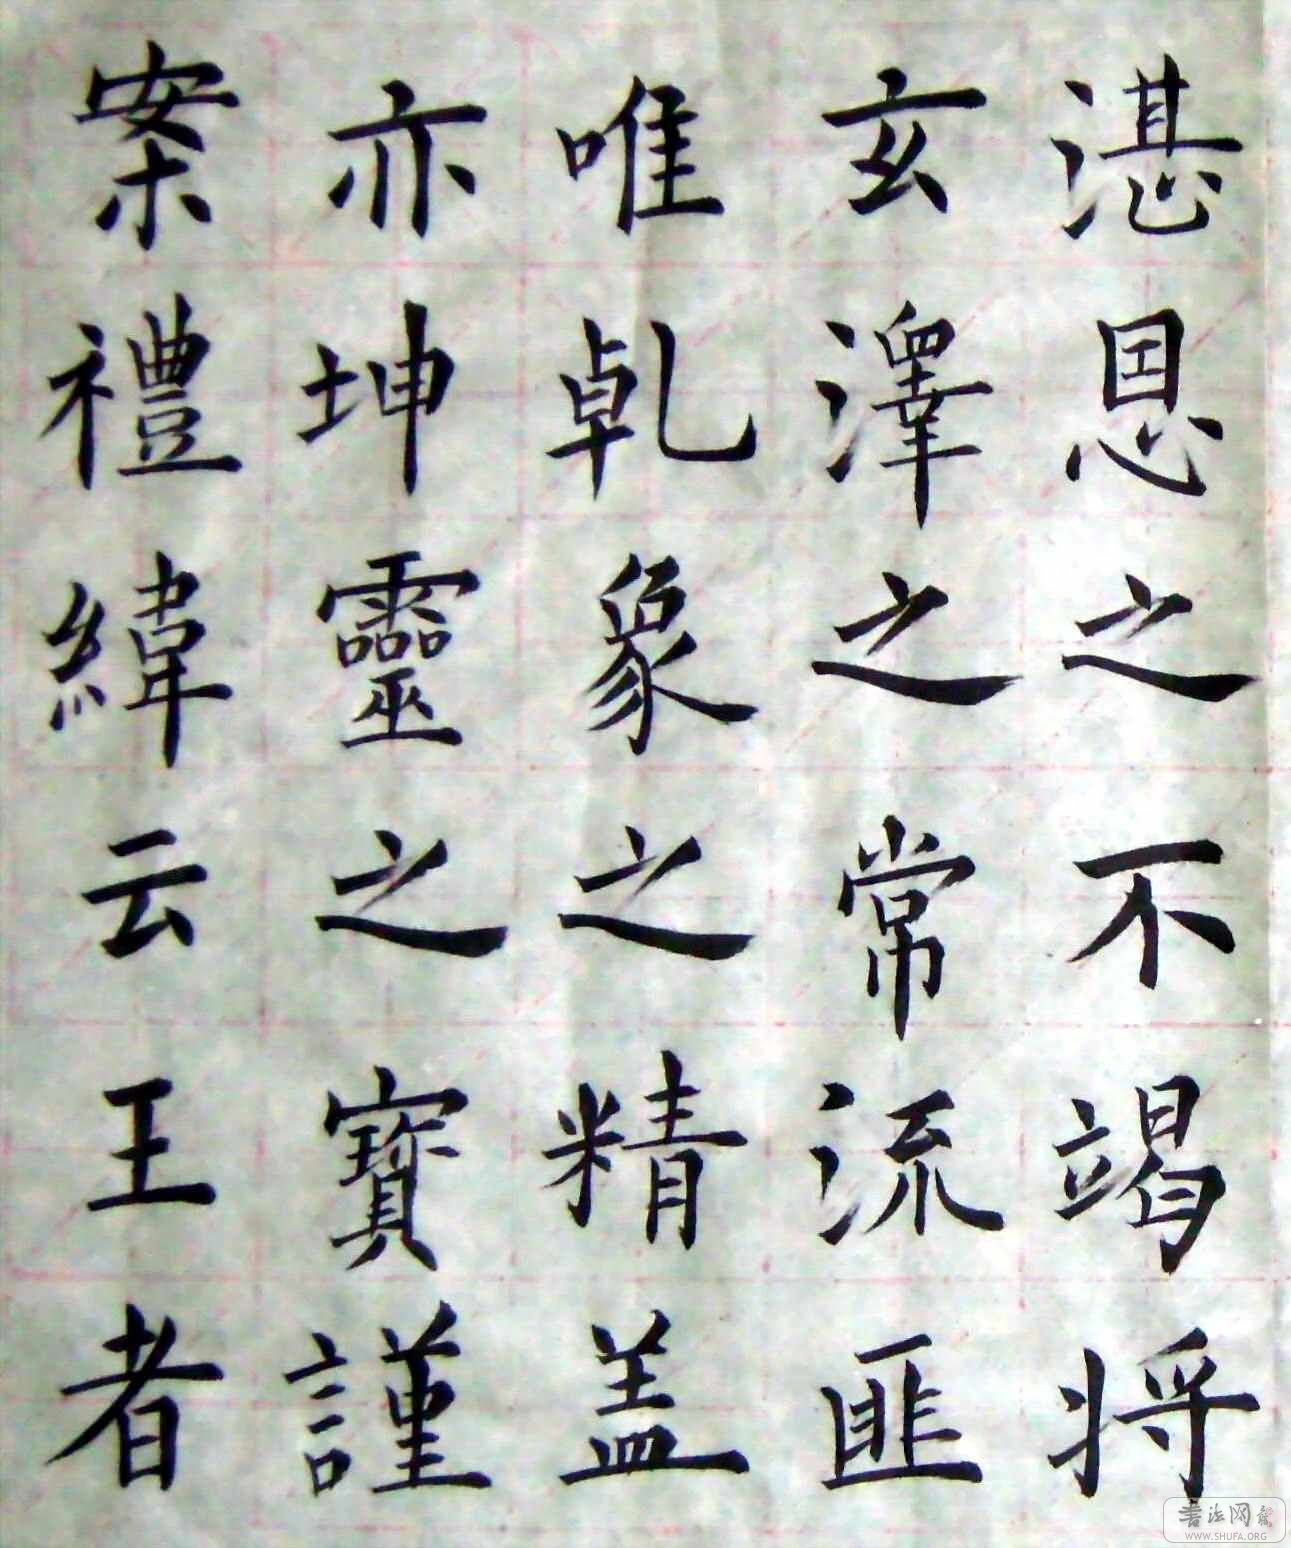 湛恩之不竭将
玄澤之常流匪
唯乹象之精盖
亦坤靈之寳謹
案禮緯云王者
书法网
WWW.SHUFA.ORG